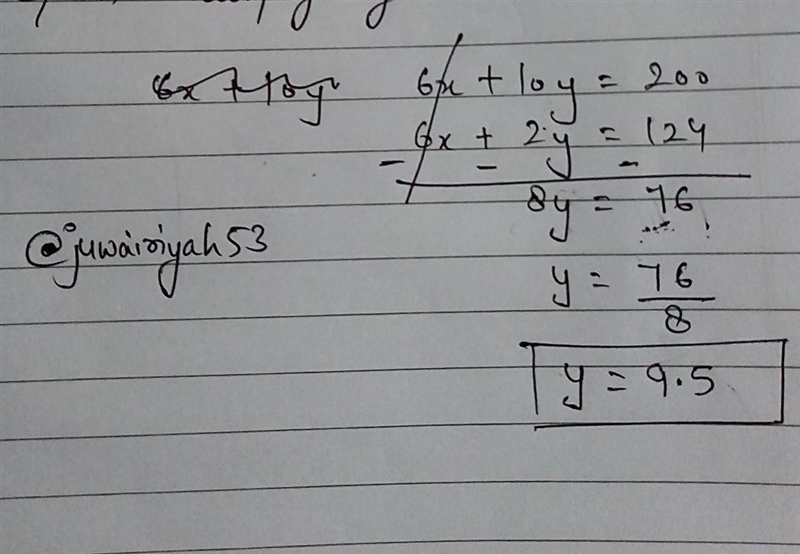 6x + 10y
6x + 10y = 200
6x + 2y = 124
- - -
8y = 76
@juwairiyah53
y = 76
8
y = 9.5